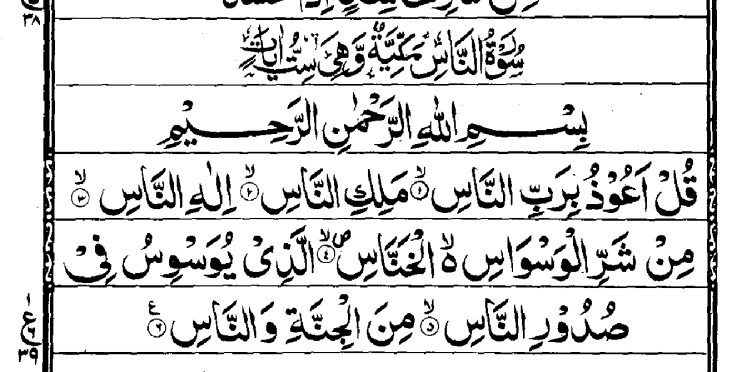 سُوْرَةُ النَّاسِ مَكِّيَّةٌ وَّهِيَ سِتُّ اٰيَاتٍ
بِسْمِ اللهِ الرَّحْمٰنِ الرَّحِيْمِ
قُلْ اَعُوْذُ بِرَبِّ النَّاسِ ۙ﴿۱﴾ مَلِكِ النَّاسِ ۙ﴿۲﴾ اِلٰهِ النَّاسِ ۙ﴿۳﴾
مِنْ شَرِّ الْوَسْوَاسِ ۵ۙ الْخَنَّاسِ ۪ۙ﴿۴﴾ الَّذِیْ یُوَسْوِسُ فِیْ
صُدُوْرِ النَّاسِ ۙ﴿۵﴾ مِنَ الْجِنَّةِ وَ النَّاسِ ﴿۶﴾ ع
۳۸
ع
۳۹